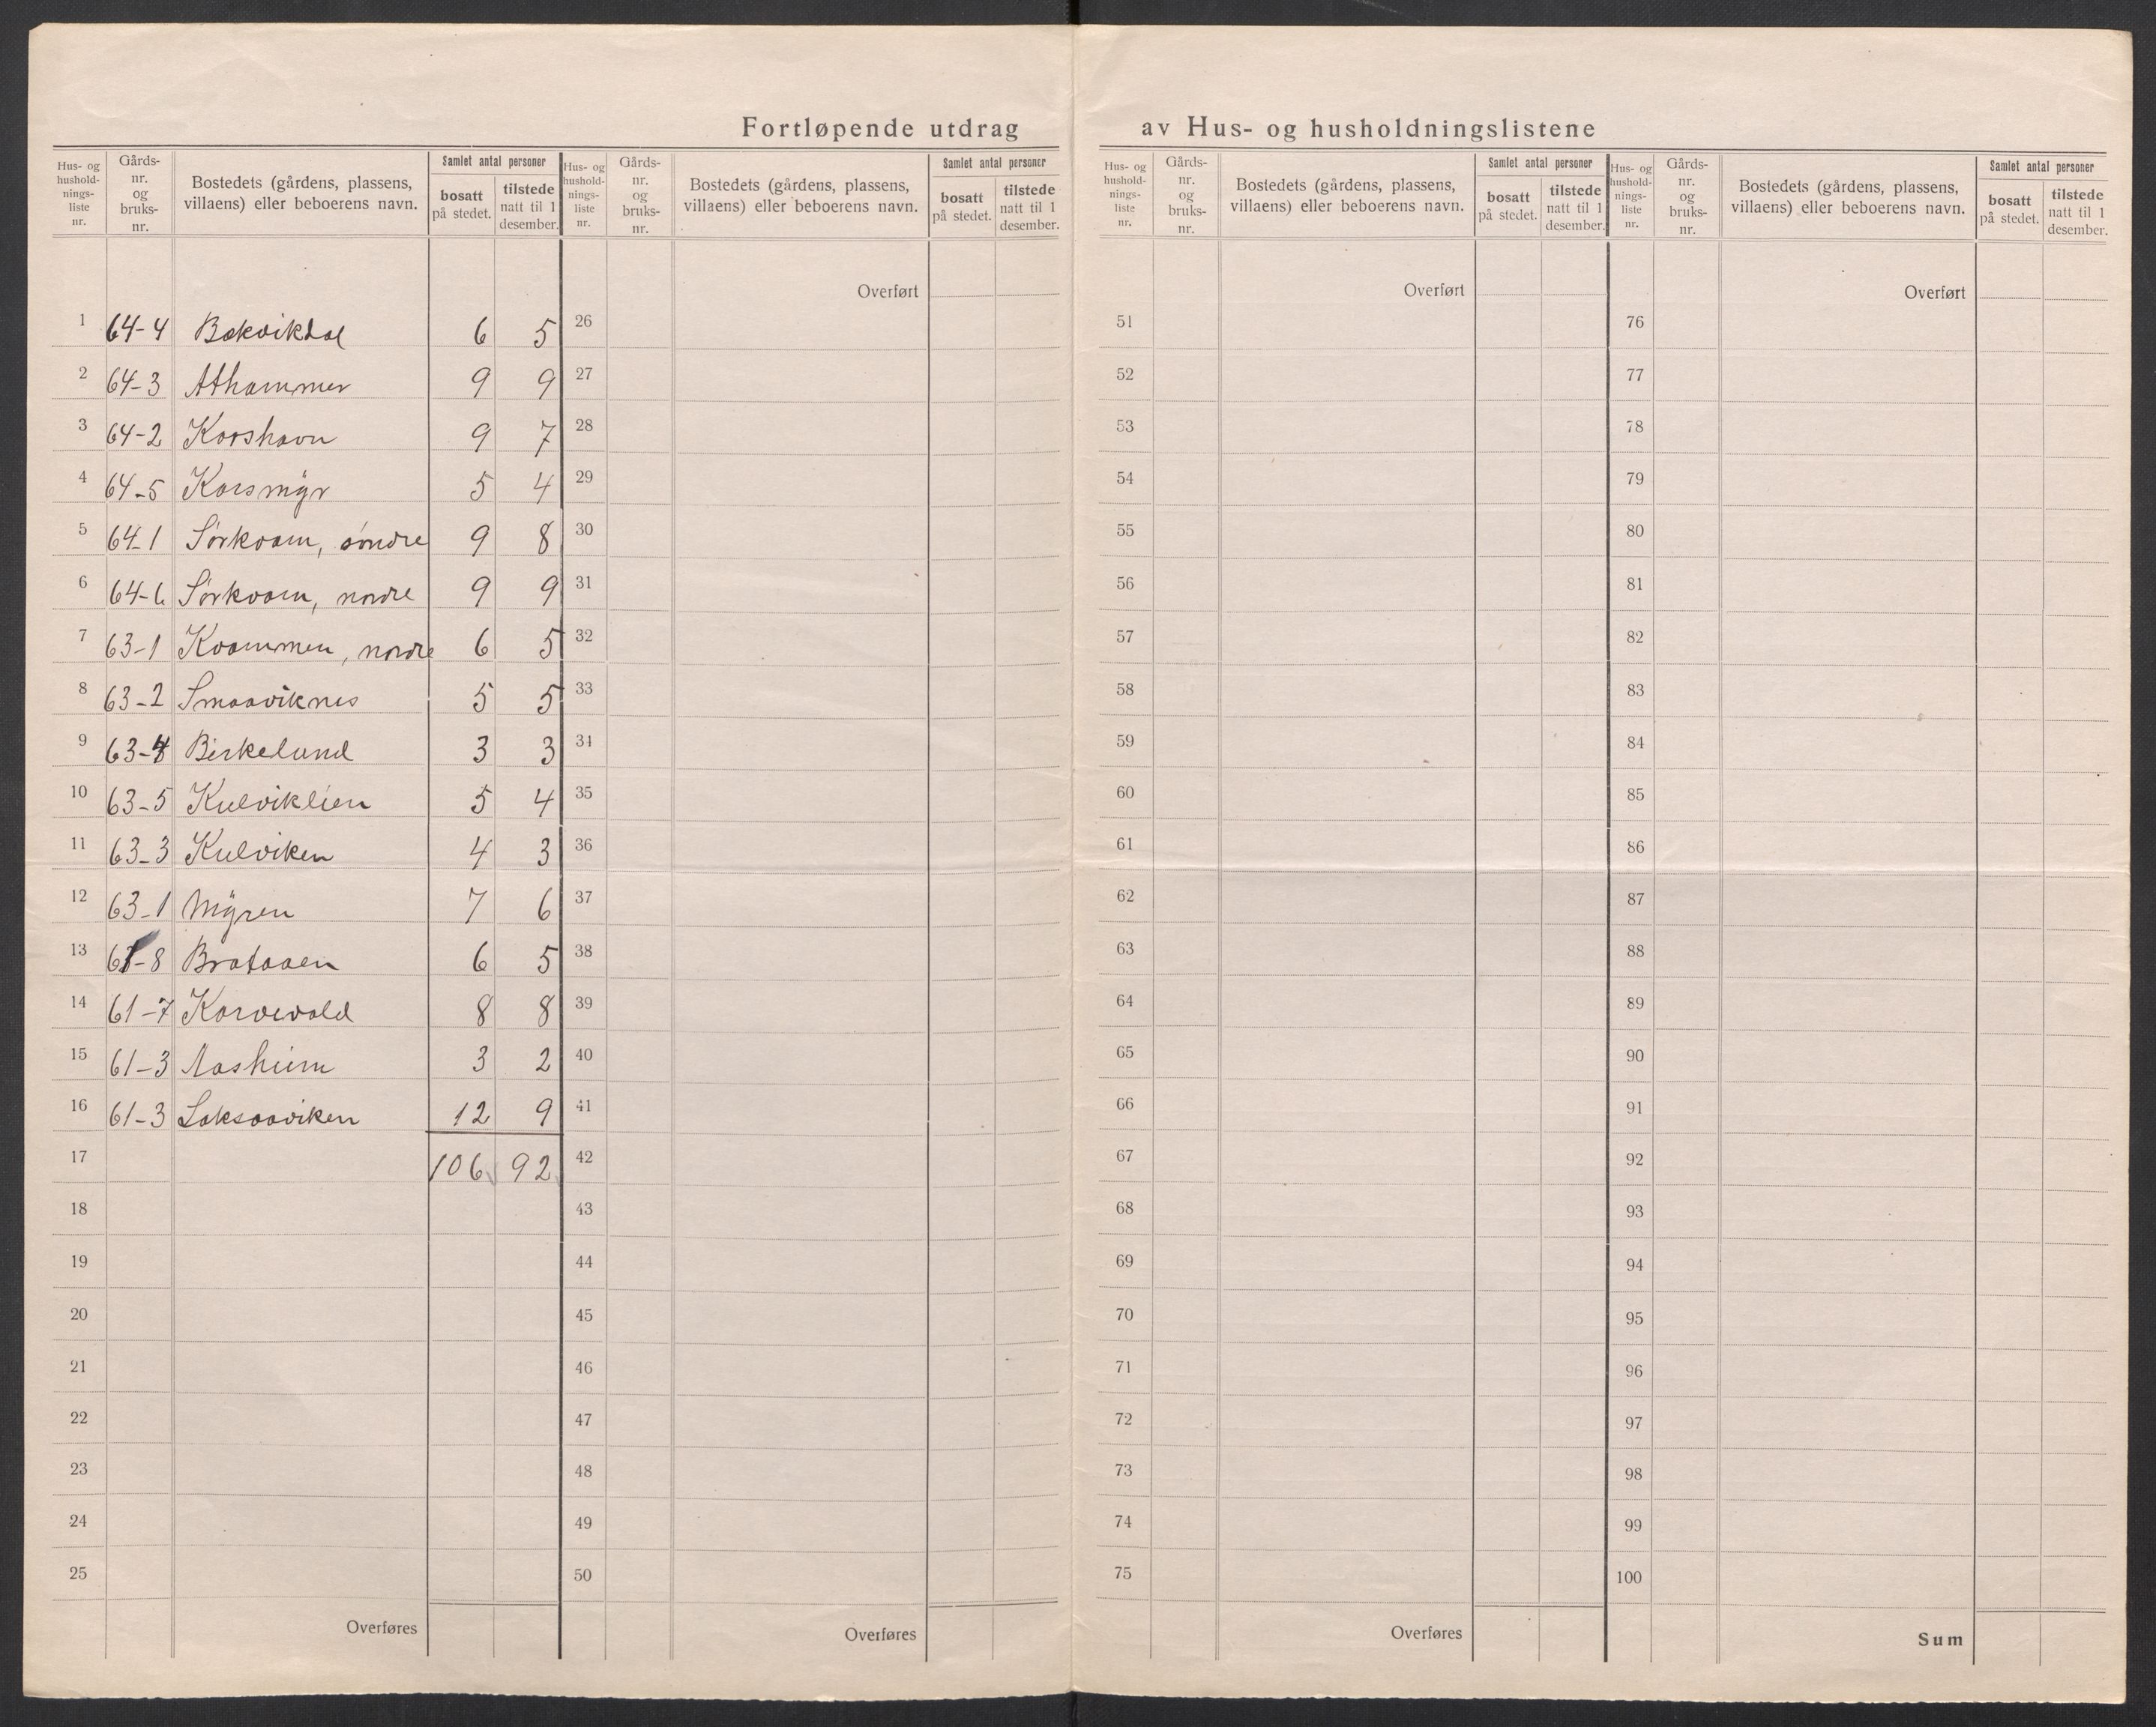 Fortløpende utdrag av Hus- og husholdningslistene
Hus- og husholdnings-liste nr. | Gårds-nr. og bruks-nr. | Bostedets (gårdens, plassens, villaens) eller beboerens navn. | Samlet antal personer | bosatt på stedet. | tilstede natt til 1 desember.
1 64-4 Bakvikdal 6 5
2 64-3 Athammer 9 9
3 64-2 Korshavn 9 7
4 64-5 Korsmyr 5 4
5 64-1 Sørkvam, søndre 9 8
6 64-6 Sørkvam, nordre 9 9
7 63-1 Kvammen, nordre 6 5
8 63-2 Smaaviknes 5 5
9 63-4 Birkelund 3 3
10 63-5 Kulviklien 5 4
11 63-3 Kulviken 4 3
12 63-1 Myren 7 6
13 61-8 Brataaen 6 5
14 61-7 Korvevold 8 8
15 61-3 Aasheim 3 2
16 61-3 Laksaaviken 12 9
17 106 92
18
19
20
21
22
23
24
25
Overføres
Hus- og husholdnings-liste nr. | Gårds-nr. og bruks-nr. | Bostedets (gårdens, plassens, villaens) eller beboerens navn. | Samlet antal personer | bosatt på stedet. | tilstede natt til 1 desember.
Overført
26
27
28
29
30
31
32
33
34
35
36
37
38
39
40
41
42
43
44
45
46
47
48
49
50
Overføres
Hus- og husholdnings-liste nr. | Gårds-nr. og bruks-nr. | Bostedets (gårdens, plassens, villaens) eller beboerens navn. | Samlet antal personer | bosatt på stedet. | tilstede natt til 1 desember.
Overført
51
52
53
54
55
56
57
58
59
60
61
62
63
64
65
66
67
68
69
70
71
72
73
74
75
Overføres
Hus- og husholdnings-liste nr. | Gårds-nr. og bruks-nr. | Bostedets (gårdens, plassens, villaens) eller beboerens navn. | Samlet antal personer | bosatt på stedet. | tilstede natt til 1 desember.
Overført
76
77
78
79
80
81
82
83
84
85
86
87
88
89
90
91
92
93
94
95
96
97
98
99
100
Sum